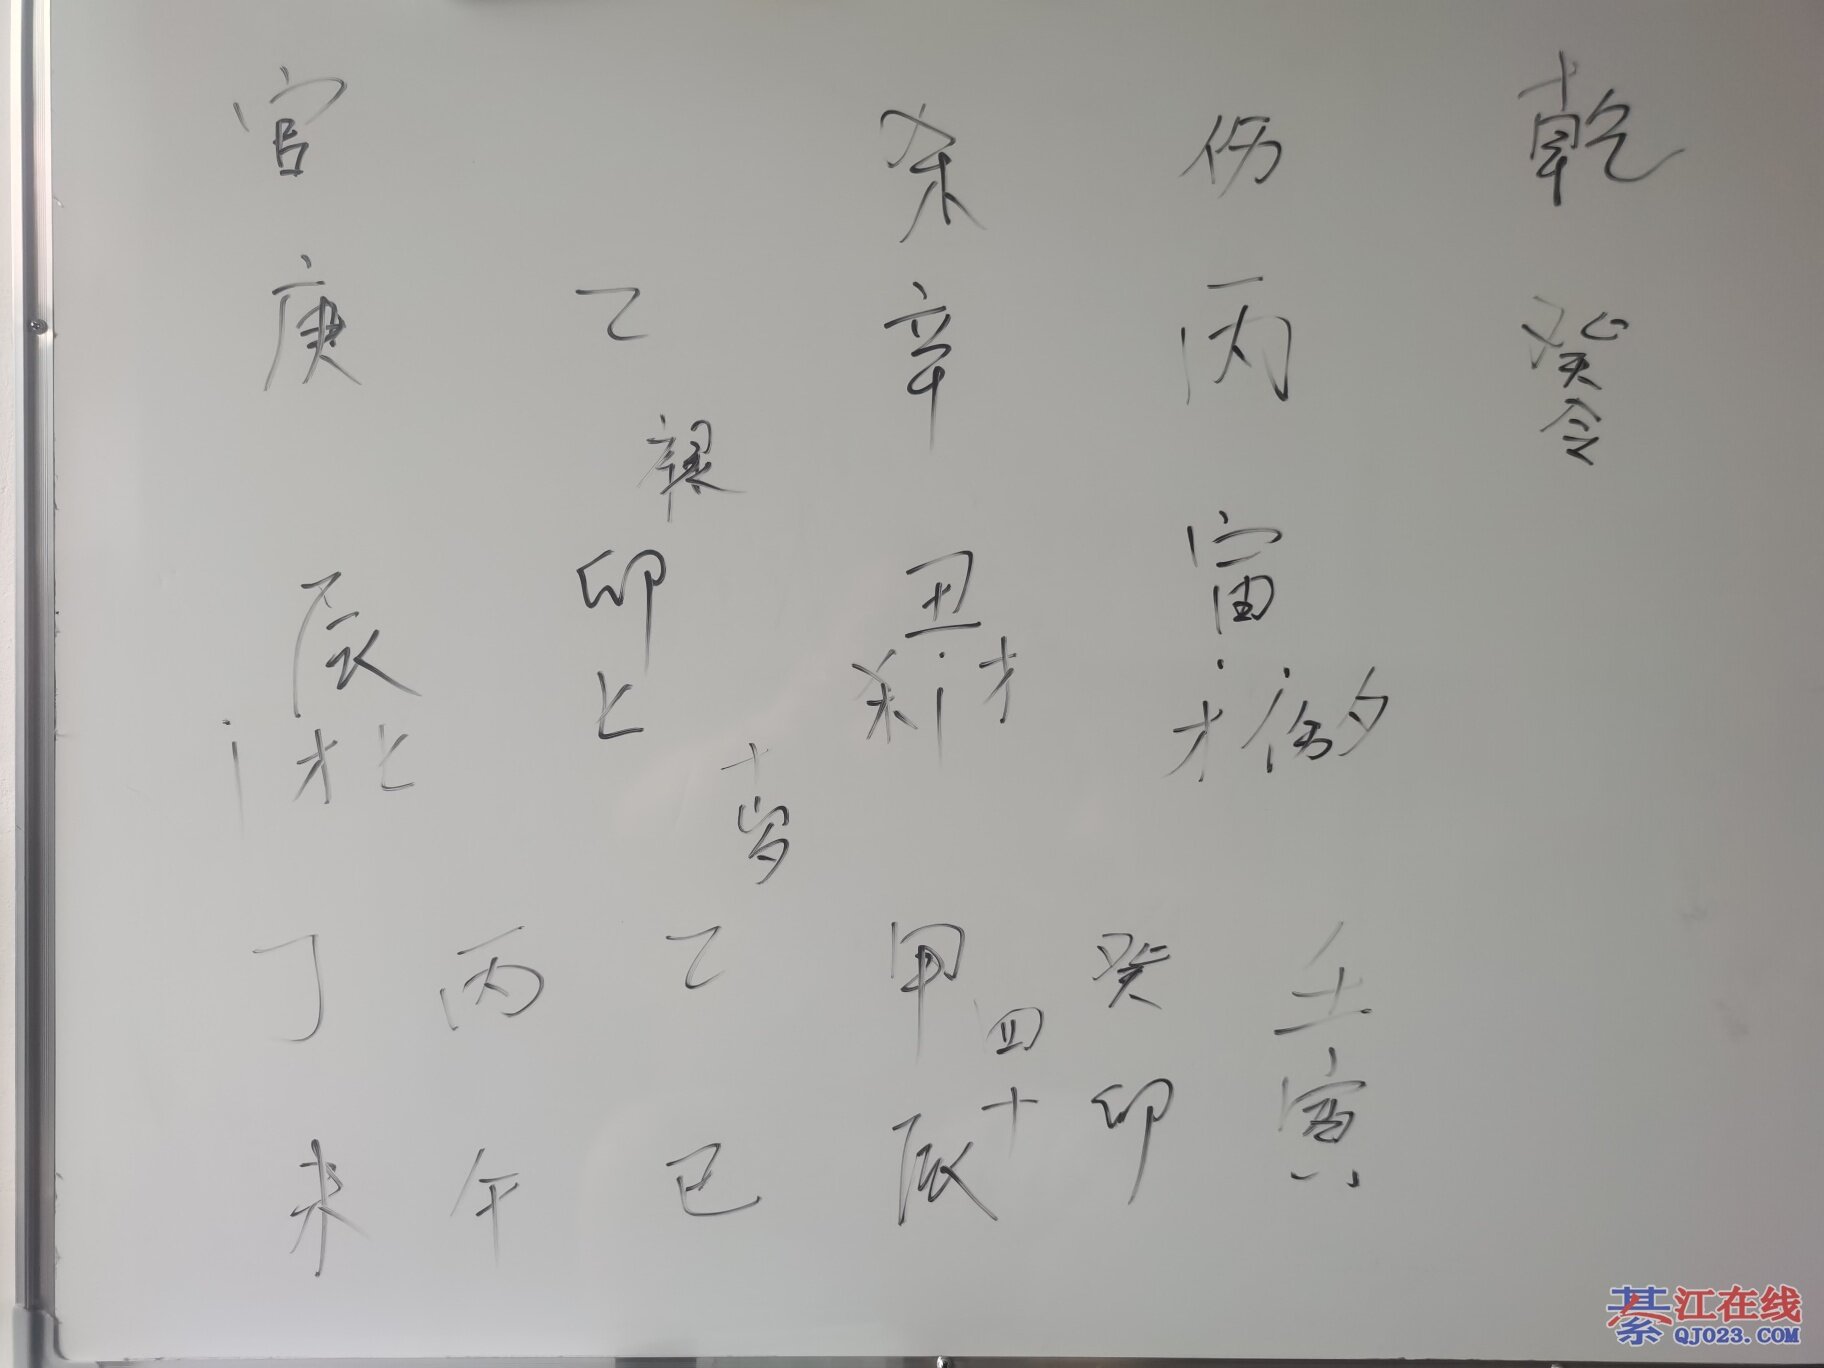 乾 伤 杀 官
癸令 丙 辛 乙 庚
禄
寅 丑 卯 辰
才 伤 才 杀 比 才 比
十岁
壬 癸 甲 乙 丙 丁
四十
寅 卯 辰 巳 午 未
綦江在线
QJ023.COM